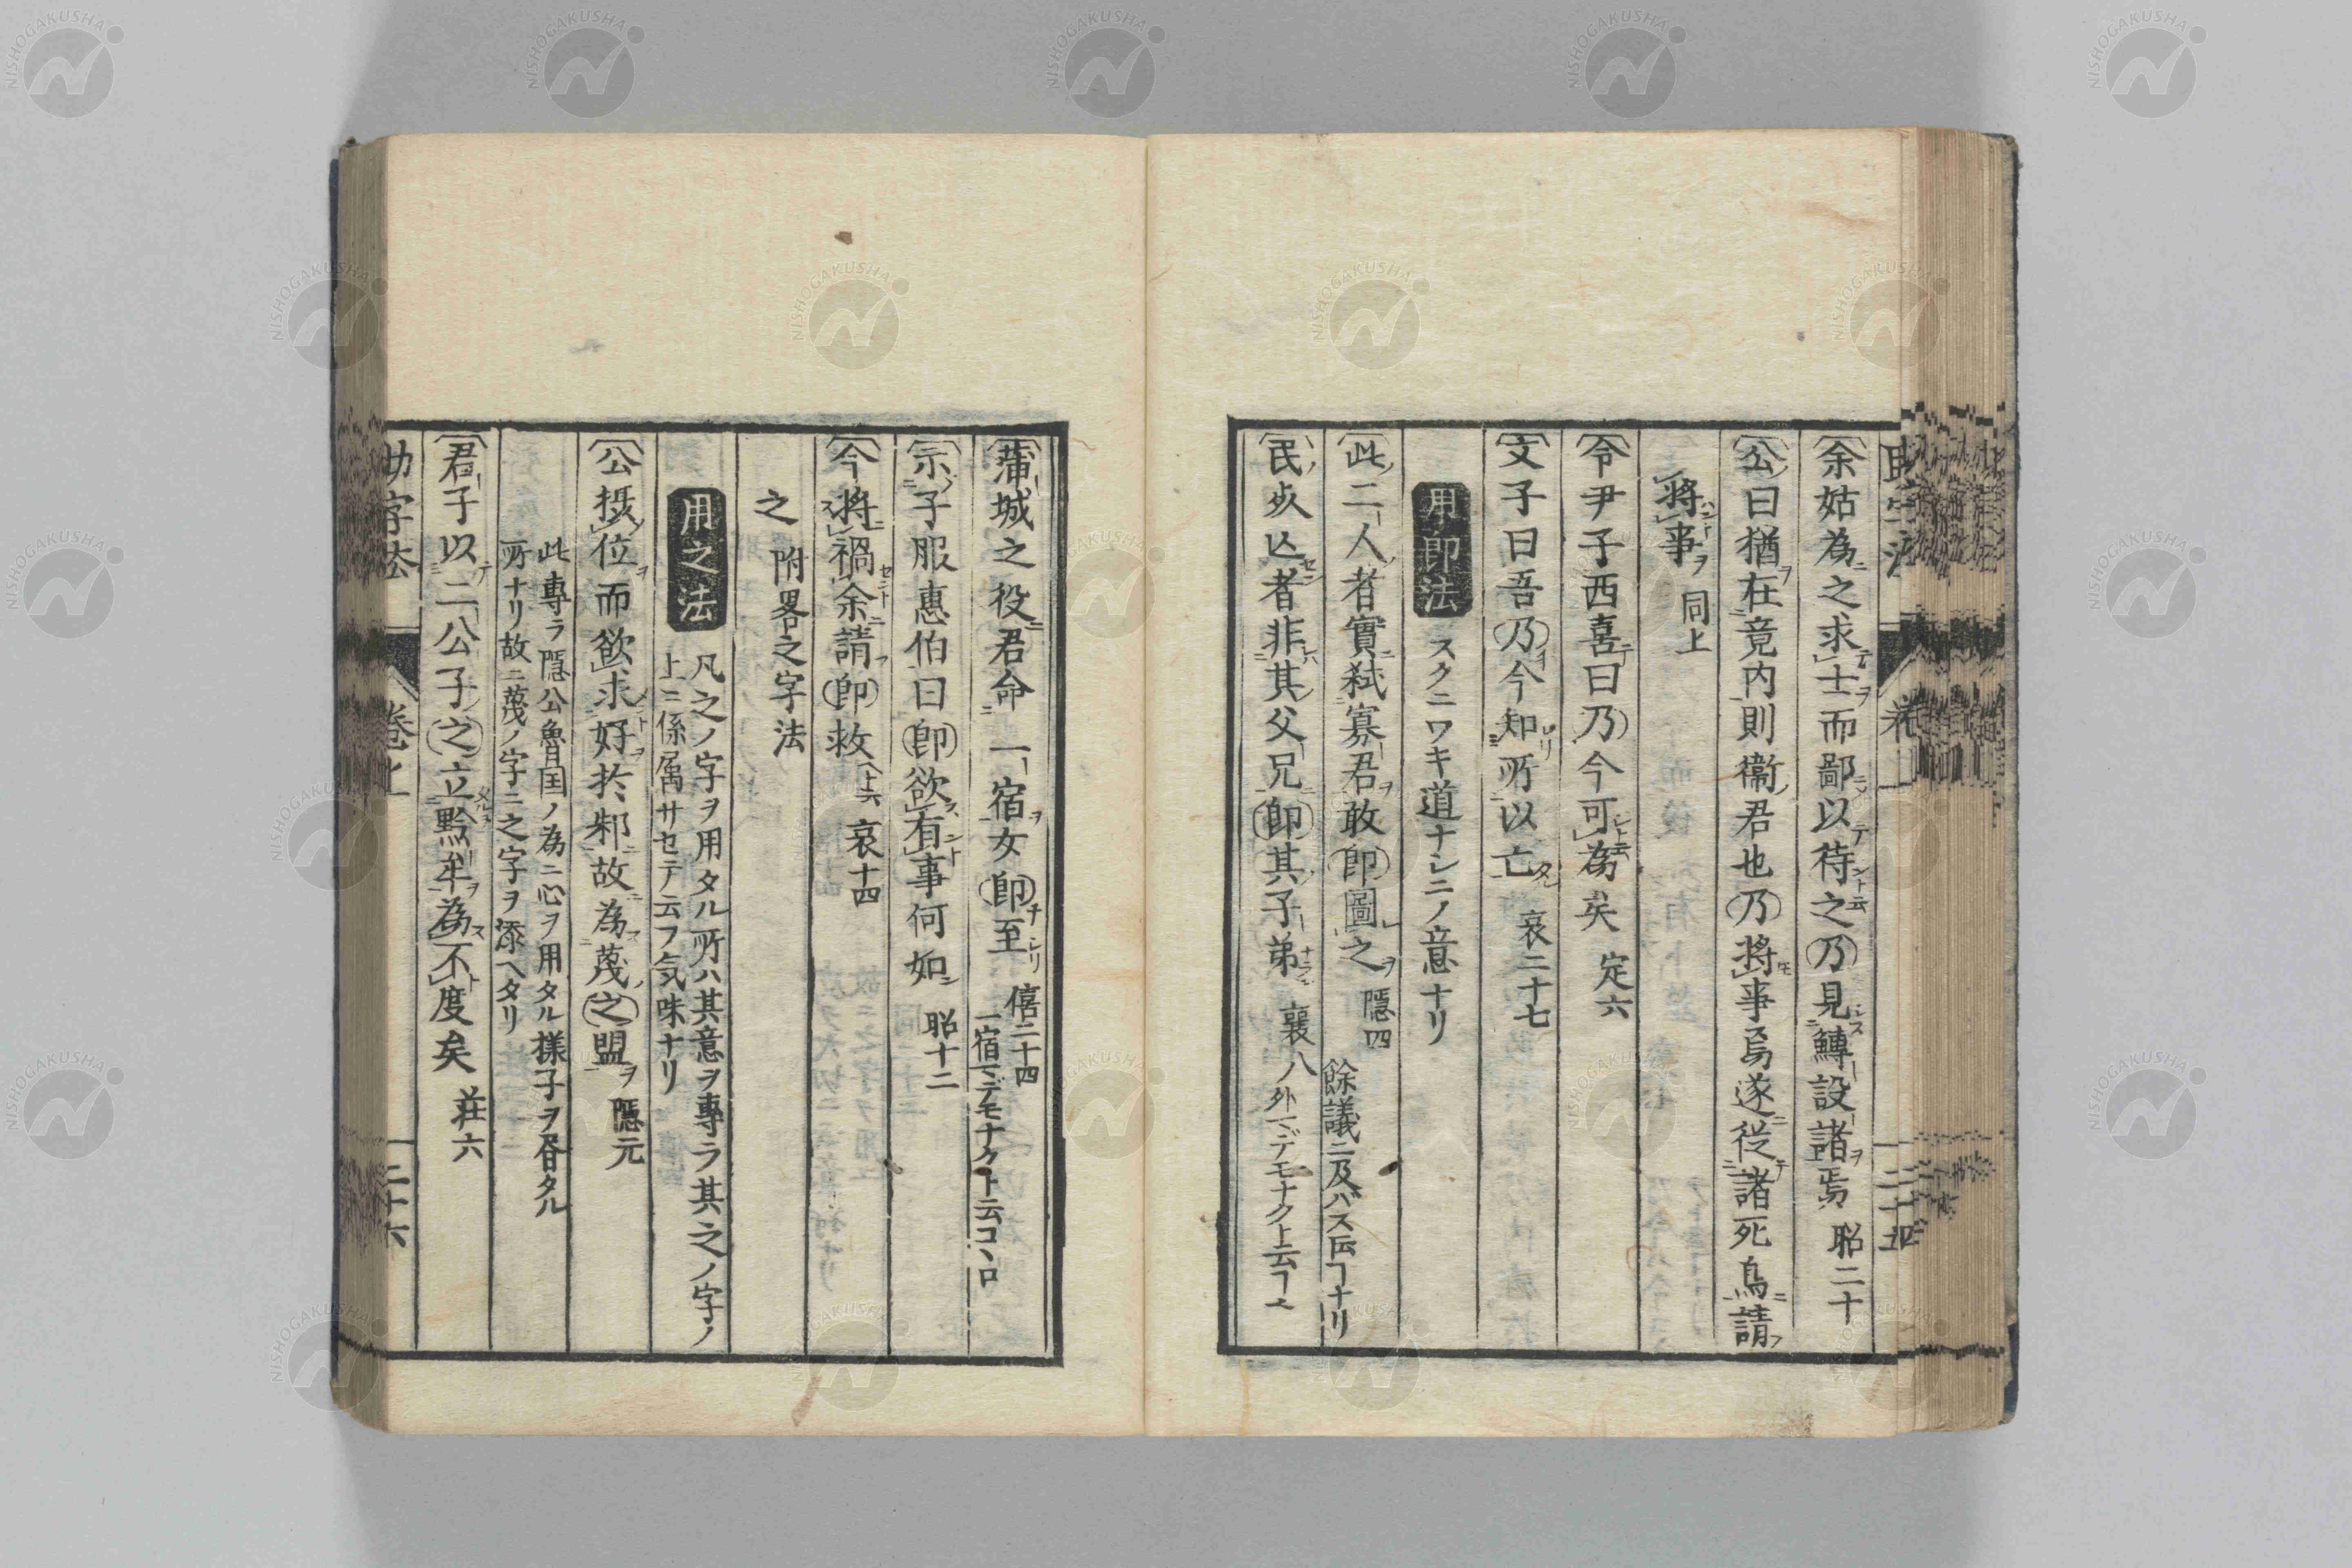 余姑為之求士而鄙以待之乃見鱄設諸焉 昭二十
公曰猶在竟内則衞君也乃將事焉遂從諸死鳥請
將事 同上
令尹子西喜曰乃今可為矣 定六
文子曰吾乃今知所以亡 哀二十七
用即法 スクニワキ道ナシニノ意ナリ
此二人者實弑寡君敢即圖之 隠四 餘議ニ及バス
民死亾者非其父兄即其子弟 襄八 外デモナク
蒲城之役君命一宿女即至 僖二十四 一宿デモナク
示子服惠伯曰即欲有事何如 昭十二
今將禍余請即救 哀十四
之 附畧之字法
用之法 凡之ノ字ヲ用タル所ハ其意ヲ專ラ其之ノ字ノ
上ニ係属サセテ云フ気味ナリ
公摂位而欲求好於邾故為蔑之盟 隠元
此專ラ隠公魯国ノ為ニ心ヲ用タル様子ヲ㕯タル
所ナリ故ニ蔑ノ字ニ之字ヲ添ヘタリ
君子以二公子之立黔牟為不度矣 荘六
助字法 卷上 二十六